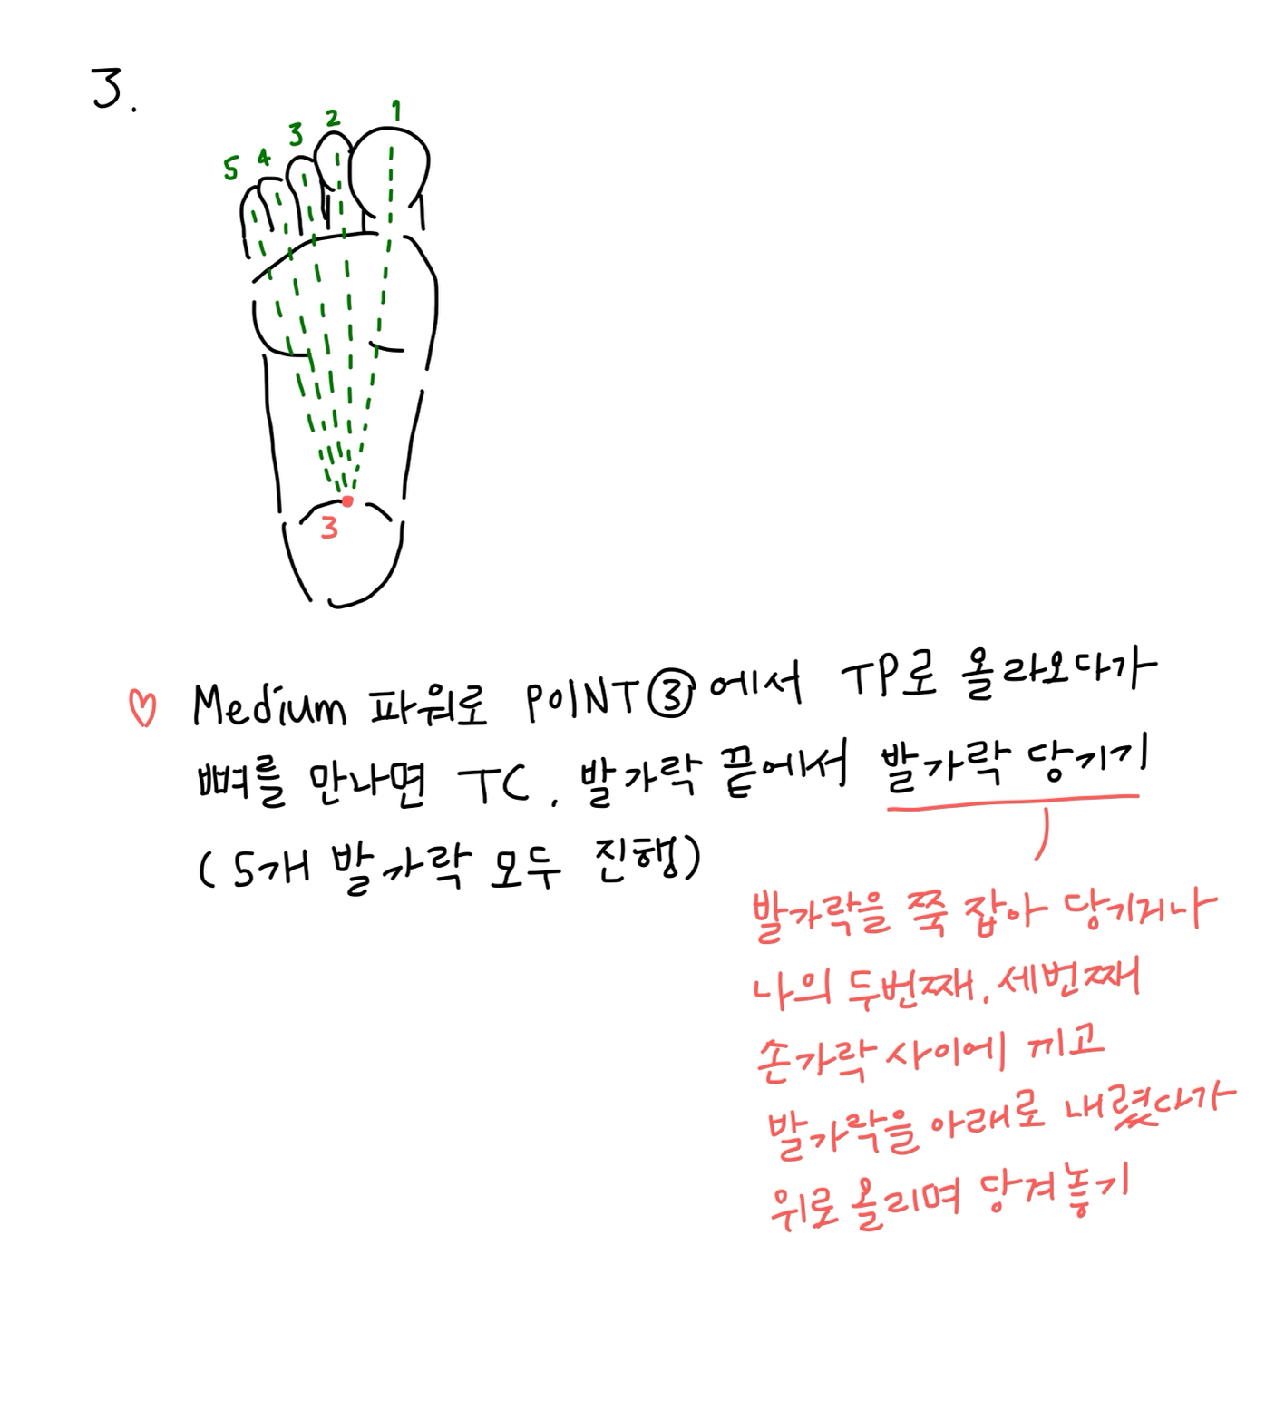 3.
1
2
3
4
5
3
♡ Medium 파워로 POINT③에서 TP로 올라오다가
뼈를 만나면 TC, 발가락 끝에서 발가락 당기기
(5개 발가락 모두 진행)
발가락을 쭉 잡아 당기거나
나의 두번째, 세번째
손가락 사이에 끼고
발가락을 아래로 내렸다가
위로 올리며 당겨놓기